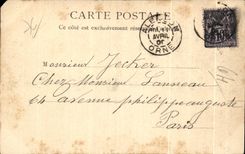 CARTE POSTALE
Ce côté est exclusivement réservé
AVRIL
ORNE
Monsieur Jecker
Chez Monsieur Lanneau
64 avenue philippe auguste
Paris